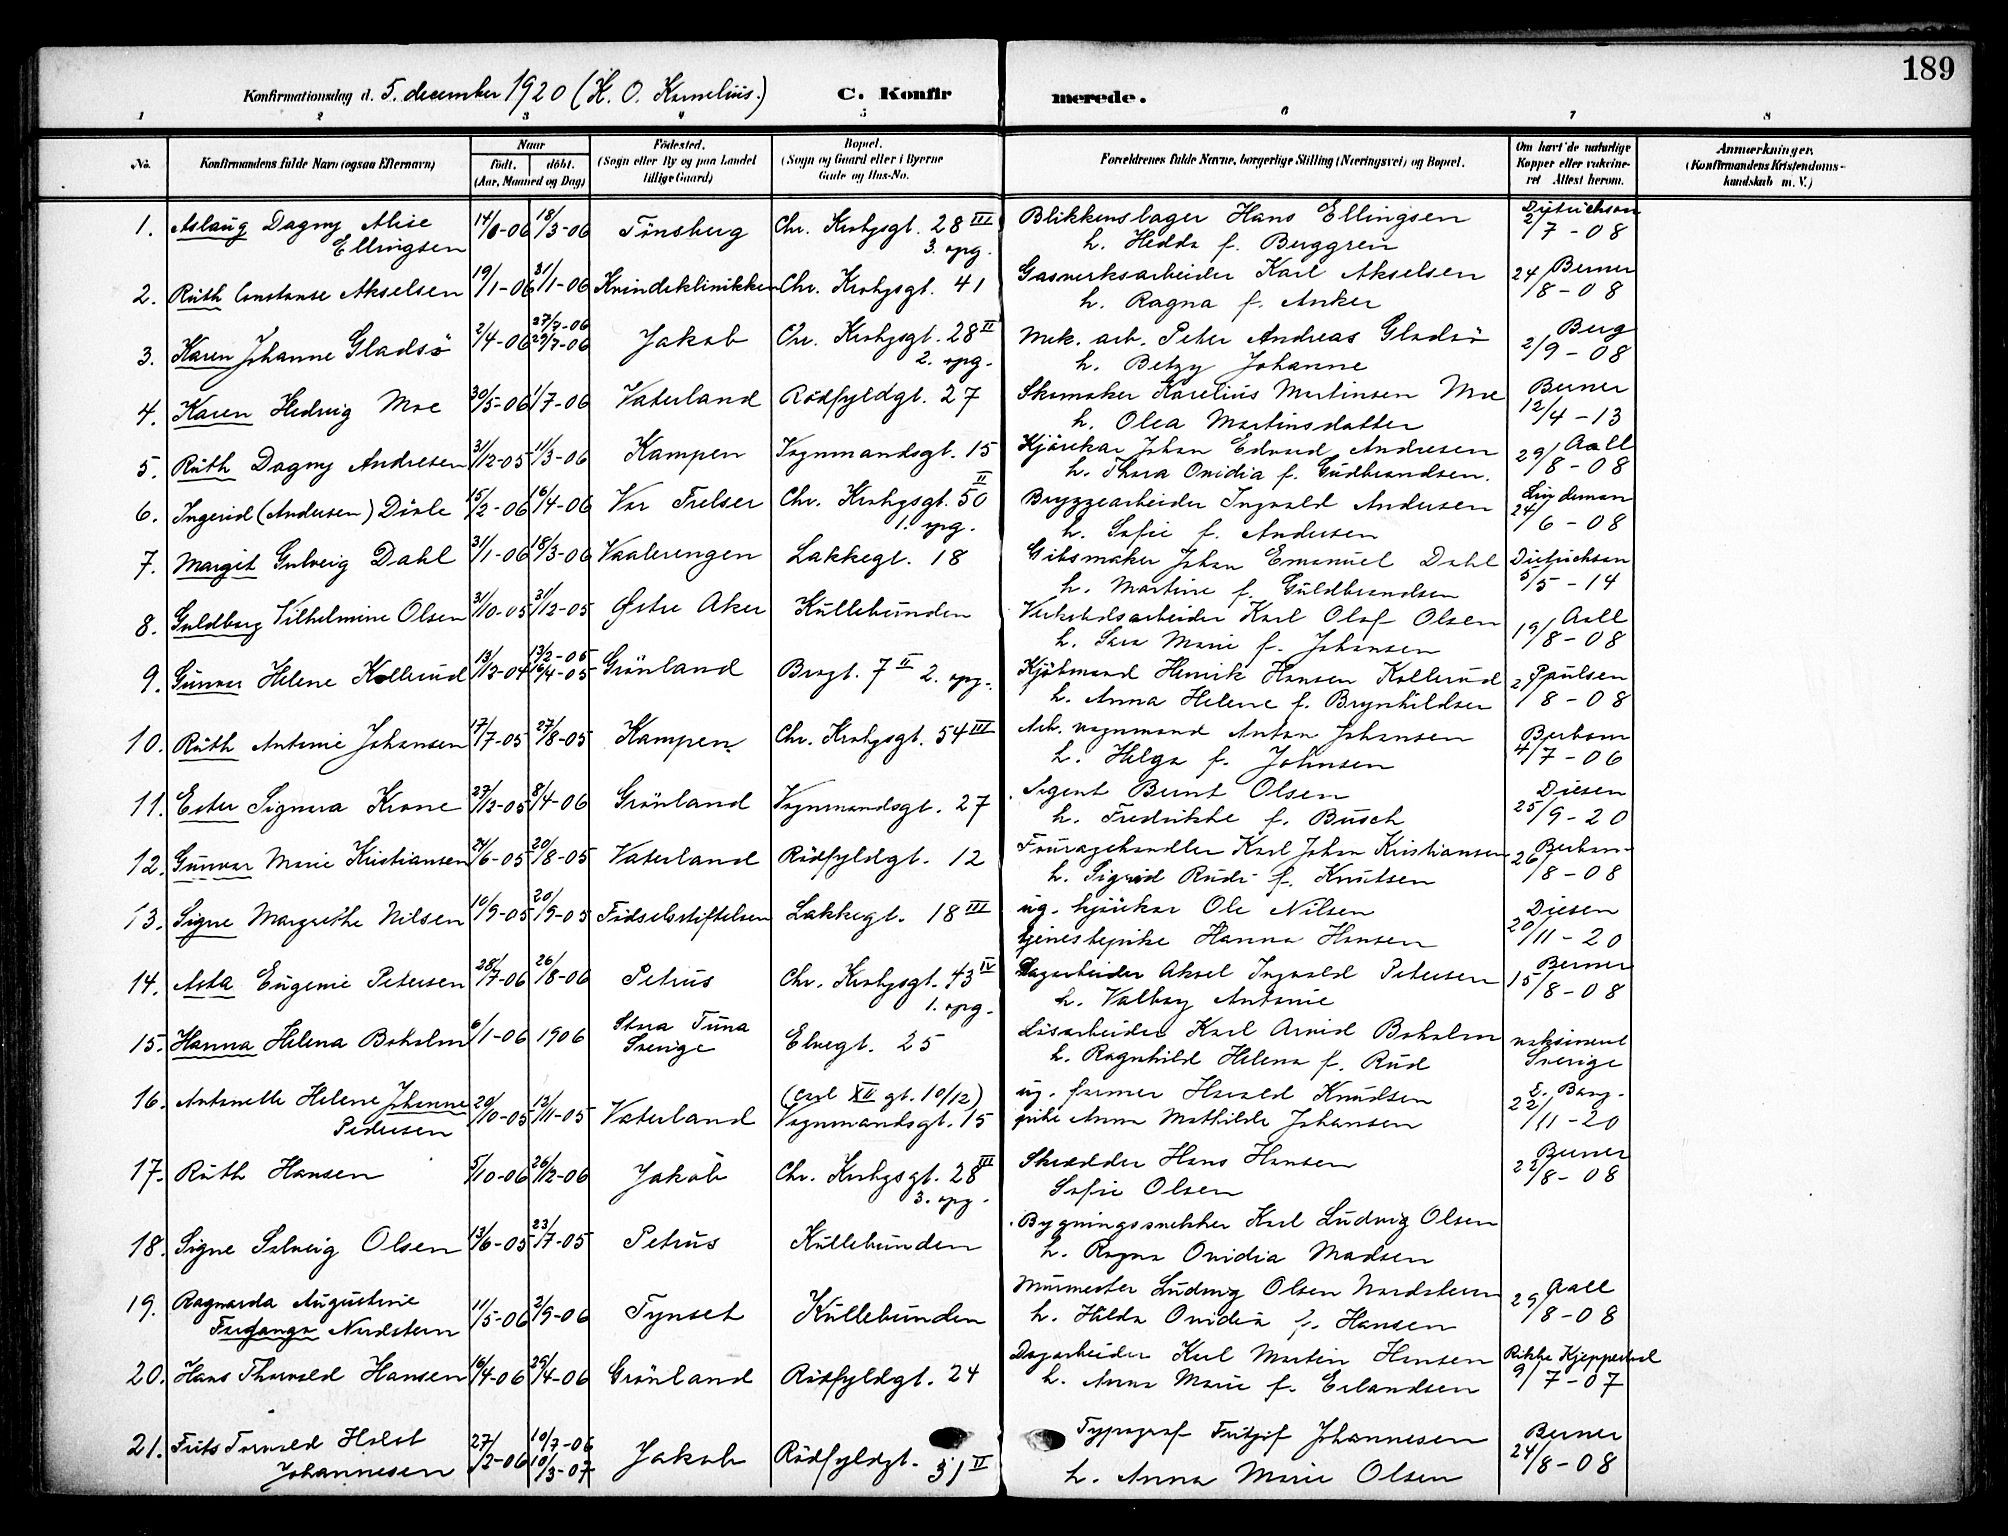 189
Konfirmationsdag d. 5. december 1920 (K. O. Kornelius.) C. Konfirmerede.
1 2 3 4 5 6 7 8
No. Konfirmandens fulde Navn (ogsaa Efternavn) Naar født. døbt. (Aar, Maaned og Dag) Fødested. (Sogn eller By og paa Landet tillige Gaard) Bopæl. (Sogn og Gaard eller i Byerne Gade og Hus-No. Forældrenes fulde Navne, borgerlige Stilling (Næringsvei) og Bopæl. Om havt de naturlige Kopper eller vakcineret Attest herom. Anmærkninger. (Konfirmandens Kristendomskundskab m. V.)
1. Aslaug Dagny Alise 18/3-06 Tønsberg Chr. Krohgsgt. 28 III Blikkenslager Hans Ellingsen Dietrichson
Ellingsen 3. opg. h. Hedda f. Berggren 2/7-08
2. Ruth Constanse Akselsen 19/1-06 31/1-06 Kvindeklinikken Chr. Krohgsgt. 41 Gasverksarbeider Karl Akselsen Berner
h. Ragna f. Anker 24/8-08
3. Karen Johanne Gladsö 2/4-06 27/7-06 29/7-06 Jakob Chr. Krohgsgt. 28 II Mek. arb. Peter Andreas Gladsö Berg
2. opg. h. Betzy Johanne 2/9-08
4. Karen Hedvig Moe 30/5-06 1/7-06 Vaterland Rödfyldgt. 27 Skomaker Karelius Martinsen Moe Berner
h. Olea Martinsdatter 12/4-13
5. Ruth Dagny Andresen 31/12-05 11/3-06 Kampen Vognmandsgt. 15 Kjörekar Johan Edvard Andresen Aall
h. Thora Ovidia f. Gudbrandsen. 29/8-08
6. Ingerid (Andersen) Döle 15/2-06 16/4-06 Vor Frelser Chr. Krohgsgt. 50 II Bryggearbeider Ingvald Andersen Lindeman
1. opg. h. Sofie f. Andersen 24/6-08
7. Margit Solveig Dahl 31/1-06 18/3-06 Vaalerengen Lakkegt. 18 Gibsmaker Johan Emanuel Dahl Dietrichson
h. Martine f. Guldbrandsen 5/5-14
8. Guldborg Vilhelmine Olsen 31/10-05 31/12-05 Østre Aker Kullebunden Verkstedsarbeider Karl Olaf Olsen Aall
h. Sara Marie f. Johansen 19/8-08
9. Gunvor Helene Kollerud 13/12-04 13/2-05 16/4-05 Grönland Brogt. 7 II 2. opg. Kjöbmand Henrik Hansen Kollerud
h. Anna Helene f. Brynhildsen 8-08
10. Ruth Antonie Johansen 17/7-05 27/8-05 Kampen Chr. Krohgsgt. 54 III Arb. vognmand Anton Johansen
h. Helga f. Johnsen 4/7-06
11. Ester Signora Krone 27/12-05 8/4-06 Grönland Vognmandsgt. 27 Agent Bernt Olsen Diesen
h. Fredrikke f. Busch 25/9-20
12. Gunvor Marie Kristiansen 24/6-05 20/8-05 Vaterland Rödfyldgt. 12 Fouragehandler Karl Johan Kristiansen
h. Sigrid Rudi f. Knutsen 26/8-08
13. Signe Margrethe Nilsen 10/9-05 20/9-05 Födselsstiftelsen Lakkegt. 18 III ug. kjörekar Ole Nilsen Diesen
tjenestepike Hanna Hansen 20/11-20
14. Asta Eugenie Petersen 28/7-06 26/8-06 Petrus Chr. Krohgsgt. 43 IV Dagarbeider Aksel Ingvald Petersen Berner
1. opg. h. Valborg Antonie 15/8-08
15. Hanna Helena Boholm 6/1-06 1906 Stora Tuna Sverige Elvegt. 25 Løsarbeider Karl Arvid Boholm vaksineret
h. Ragnhild Helena f. Rud Sverige
16. Antonette Helene Johanne 29/10-05 12/11-05 Vaterland (Carl XII gt. 10/12) ug. former Harald Knudsen E. Bang.
Pedersen Vognmandsgt. 15 pike Anna Mathilde Johansen 22/11-20
17. Ruth Hansen 5/10-06 26/12-06 Jakob Chr. Krohgsgt. 28 III Skrædder Hans Hansen Berner
3. opg. Sofie Olsen 22/8-08
18. Signe Solveig Olsen 13/6-05 23/7-05 Petrus Kullebunden Bygningssnekker Karl Ludvig Olsen
h. Ragna Ovidia Madsen
19. Ragnarda Augustine 11/5-06 2/9-06 Tynset Kullebunden Murmester Ludvig Olsen Nordstern Aall
Nordstern h. Hilda Ovidia f. Hansen 29/8-08
20. Hans Thorvald Hansen 16/4-06 29/4-06 Grönland Rödfyldgt. 24 Dagarbeider Karl Martin Hansen Rikke
h. Anna Marie f. Erlandsen 9/7-07
21. Frits Torvald Holst 27/2-06 10/7-06 10/3-07 Jakob Rödfyldgt. 31 II Typograf Fritjof Johannesen Berner
Johannesen h. Anna Marie Olsen 24/8-08